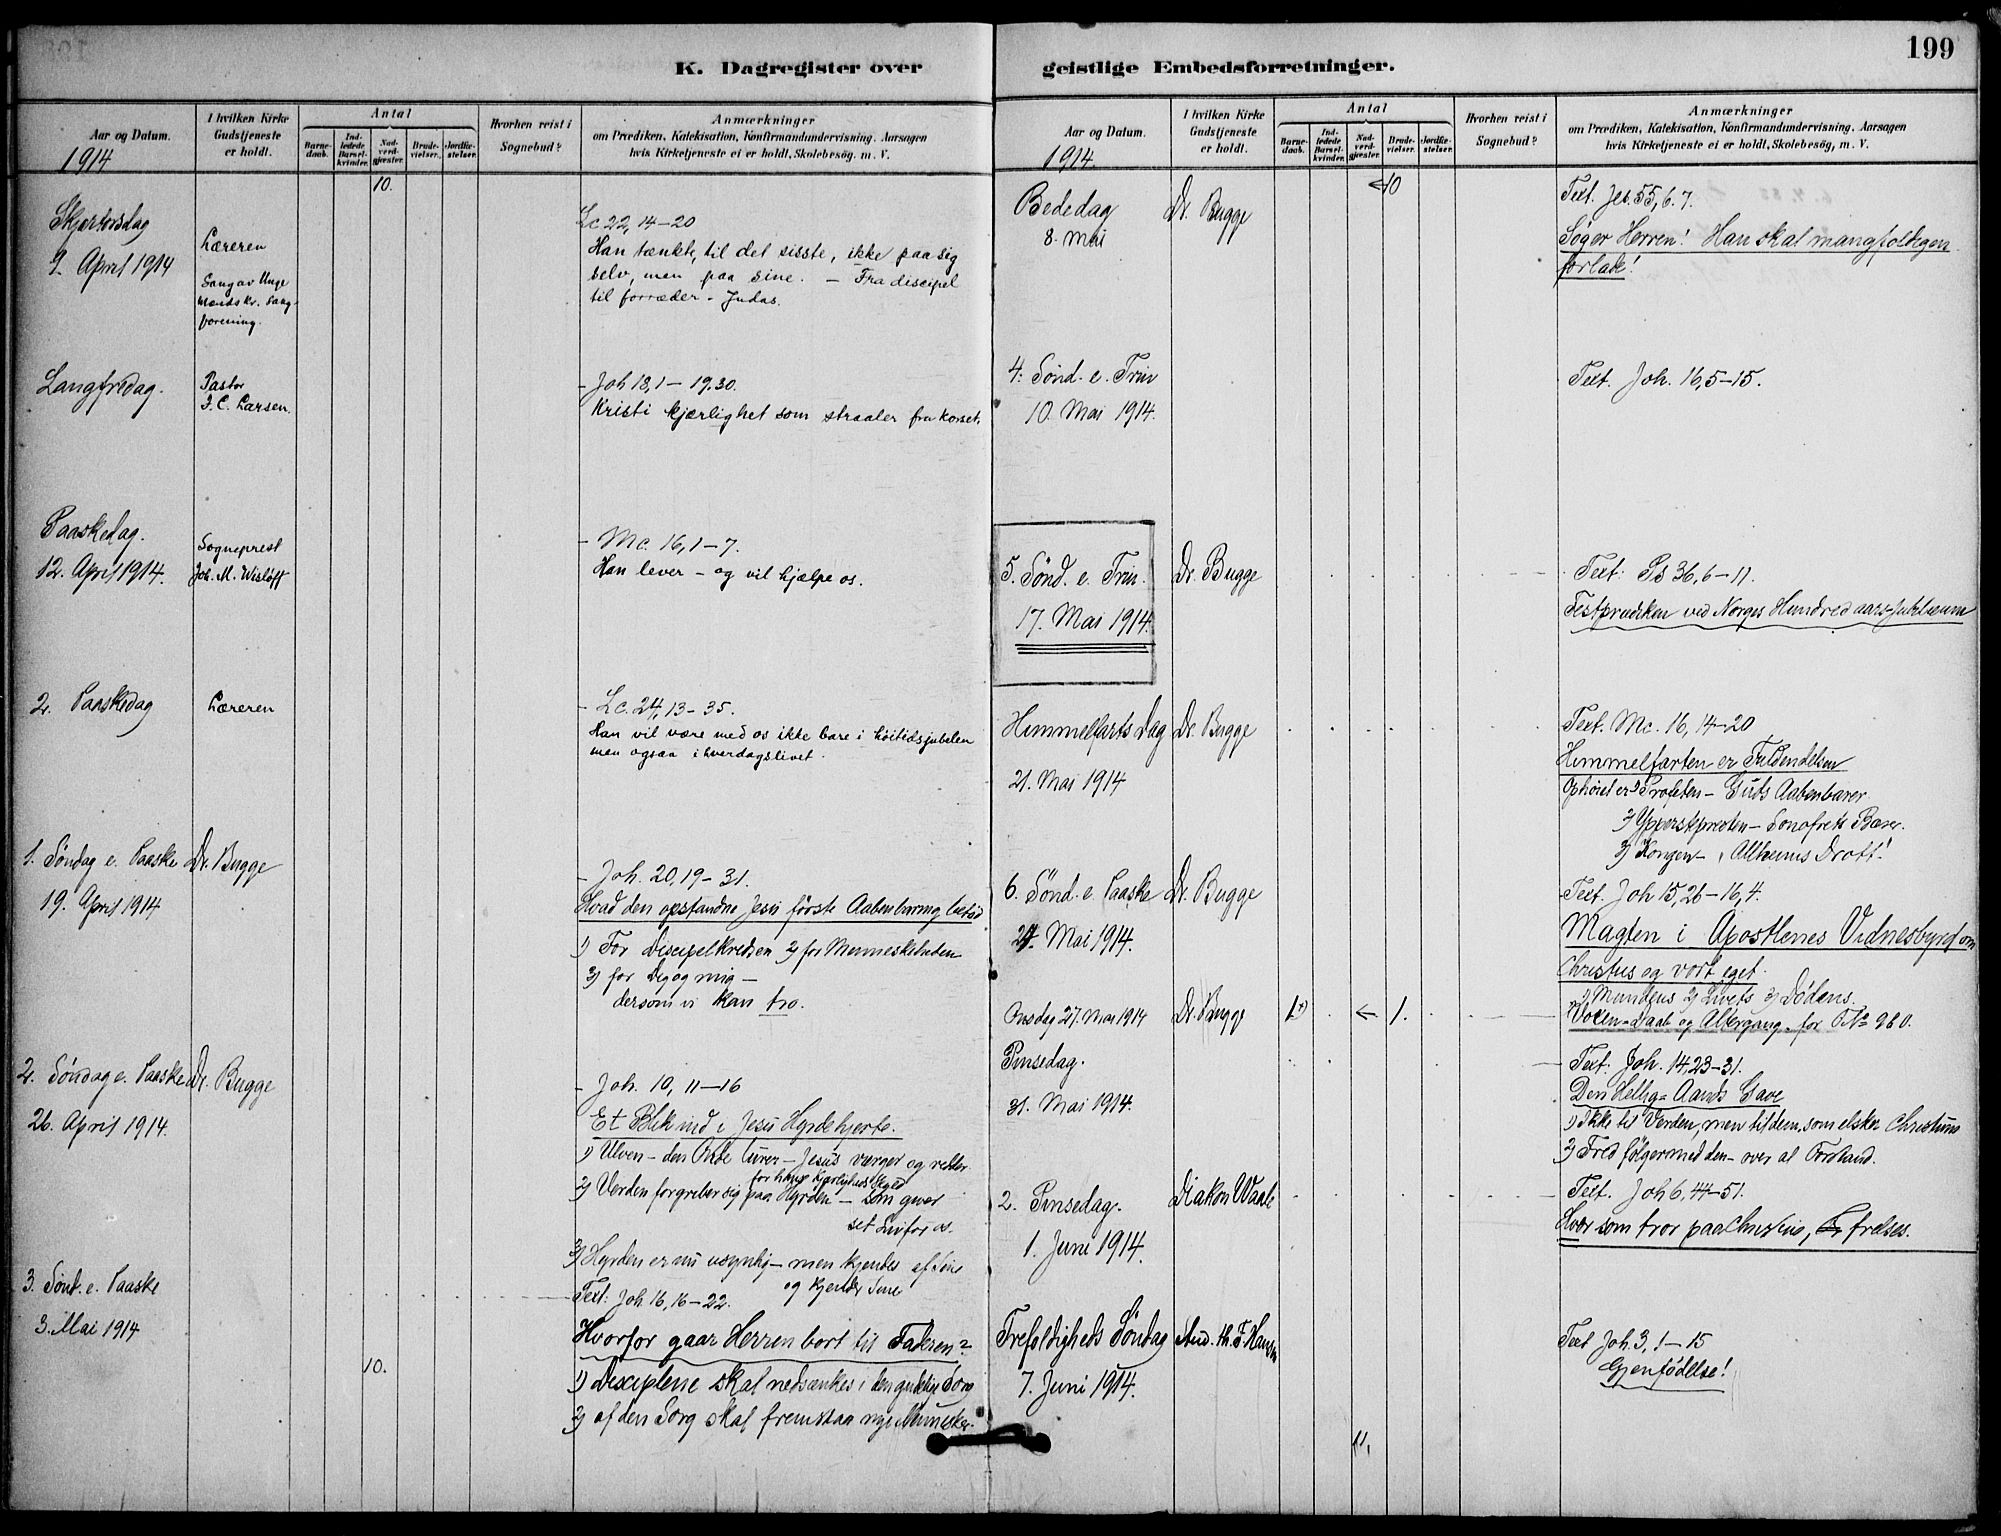 199
K. Dagregister over geistlige Embedsforretninger.
Aar og Datum.
1914
I hvilken Kirke
Gudstjeneste
er holdt.
Antal
Barne-
daab.
Ind-
ledede
Barsel-
kvinder.
Nad-
verd-
gjester.
Brude-
vielser.
Jordfæ-
stelser.
Hvorhen reist i
Sognebud?
Anmærkninger
om Prædiken, Katekisation, Konfirmandundervisning. Aarsagen
hvis Kirketjeneste ei er holdt, Skolebesøg. m. V.
10.
Skjærtorsdag
9. April 1914
Læreren
Sang av Unge
Mænds kr. Sang-
forening.
Lc 22, 14-20
Han tænkte, til det sisste, ikke paa sig
selv, men paa sine. - Fra discipel
til forræder - Judas.
Langfredag.
Pastor
I. C. Larsen.
- Joh 18,1 - 19.30.
Kristi kjærlighet som straaler fra korset.
Paaskedag.
12. April 1914.
Sogneprest
Joh. M. Wisløff
- Mc. 16, 1-7.
Han lever - og vil hjælpe os.
2. Paaskedag
Læreren
- Lc. 24, 13-35.
Han vil være med os ikke bare i høitidsjubelen
men ogsaa i hverdagslivet.
1. Søndag e. Paaske
19. April 1914
Dr. Bugge
- Joh. 20, 19-31.
Hvad den opstandne Jesu første Aabenbaring betød
1) For Discipelkredsen 2) for Menneskeheden
3) for Dig og mig -
dersom vi kan tro.
2. Søndag e. Paaske
26. April 1914.
Dr. Bugge
- Joh. 10, 11-16
Et Blik ind i Jesu Hyrdehjerte.
1) Ulven - den Onde lurer - Jesus værger og redder
2) Verden forgriber sig paa Hyrden - som giver
for hans Kjærligheds Skyld
set Liv for os.
3) Hyrden er nu usynlig - men kjendes af sine
og kjender sine
3. Sønd. e. Paaske
3. Mai 1914
10.
Text: Joh. 16, 16-22.
Hvorfor gaar Herren bort til Faderen?
1) Disciplene skal nedsænkes i den Sorg
2) af den Sorg skal fremstaa nye Mennesker.
Aar og Datum.
1914
I hvilken Kirke
Gudstjeneste
er holdt.
Antal
Barne-
daab.
Ind-
ledede
Barsel-
kvinder.
Nad-
verd-
gjester.
Brude-
vielser.
Jordfæ-
stelser.
Hvorhen reist i
Sognebud?
Anmærkninger
om Prædiken, Katekisation, Konfirmandundervisning. Aarsagen
hvis Kirketjeneste ei er holdt, Skolebesøg, m. V.
Bededag
8. Mai
Dr. Bugge
10
Text. Jes. 55, 6. 7.
Søger Herren! Han skal mangfoldigen
forlade!
4. Sønd. e. Trin
10. Mai 1914.
Text. Joh. 16, 5-15.
5. Sønd. e. Trin.
17. Mai 1914.
Dr. Bugge
Text: Ps 36, 6-11.
Festprædiken ved Norges Hundredaars-Jubilæum
Himmelfarts Dag
21. Mai 1914
Dr. Bugge
Text. Mc. 16, 14-20
Himmelfarten er Fuldendelsen
Ophøiet er 1) Profeten - Guds Aabenbarer
2) Ypperstepresten - Sonofrets Bærer.
3) Kongen - Allheims Drott!
6. Sønd. e. Paaske
24. Mai 1914.
Dr. Bugge
Text. Joh 15, 26-16, 4.
Magten i Apostlenes Vidnesbyrd om
Christus og vort eget.
1) Mundens 2) Livets 3) Dødens.
Onsdag 27. Mai 1914
Dr. Bugge
1.
1.
Voxen-Daab og Altergang for No 980.
Pinsedag.
31. Mai 1914.
Text: Joh. 14, 23-31.
Den Hellig-Aands Gave
1) Ikke til Verden, men til dem, som elsker Christum
2) Fred følger med den - over al Forstand.
2. Pinsedag.
1. Juni 1914.
Diakon Waale
Text. Joh 6, 44-51.
Hver som tror paa Christus, frelses.
Trefoldigheds Søndag
7. Juni 1914.
stud. th. F. Hansen
Text Joh. 3, 1-15
Gjenfødelse!
11.